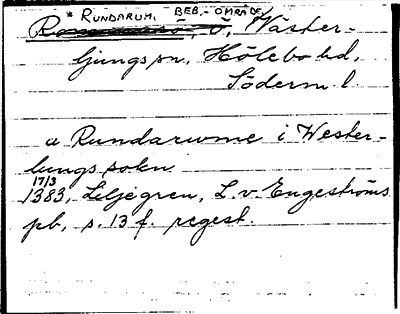 * RUNDARUM, BEB.-OMRÅDE,
Väster-
ljungs sn, Hölebo hd,
Söderm. l.
a Rundarume i Wester-
lungs sokn
17/3
1383, Liljegren, L. v. Engeströms
pb, s. 13 f. regest.